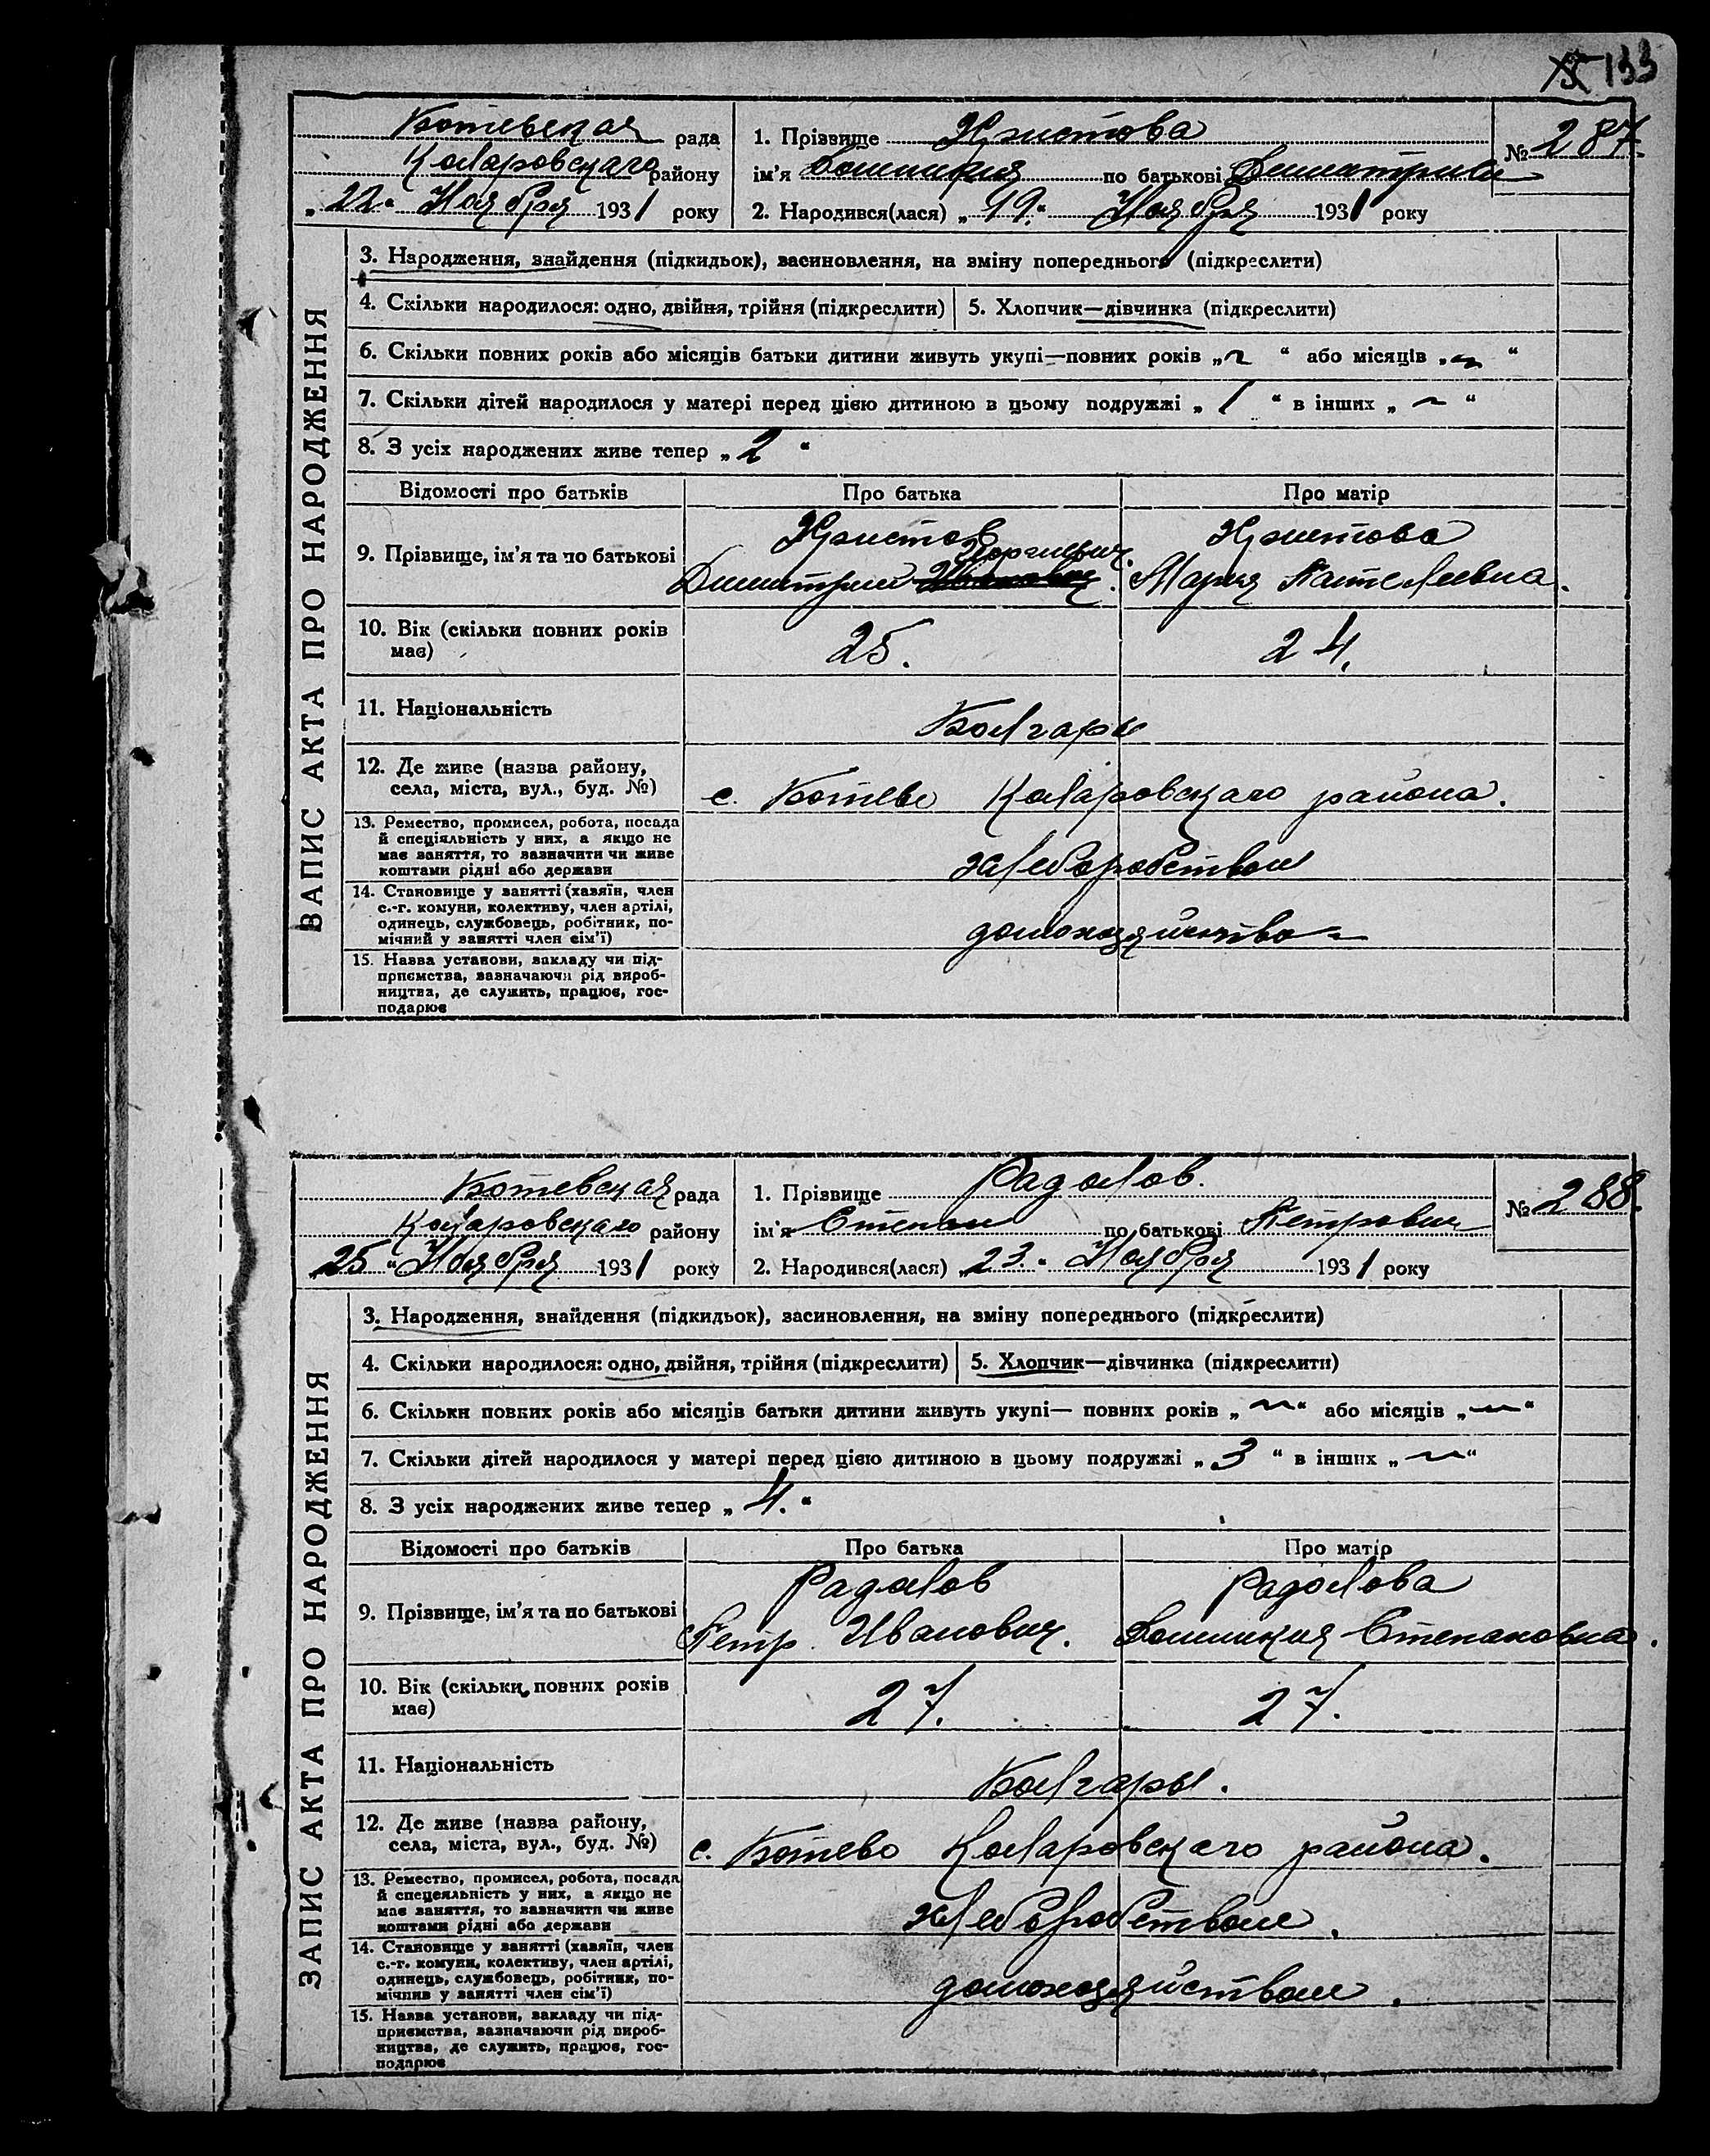 133
Ботевская рада
Коларовского району
„22“ Ноября 1931 року
1. Прізвище Христова
ім'я Домникия по батькові Димитриев
2. Народився(лася) „19.“ Ноября 1931 року
№ 287
ЗАПИС АКТА ПРО НАРОДЖЕННЯ
3. Народження, знайдення (підкидьок), засиновлення, на зміну попереднього (підкреслити)
4. Скільки народилося: одно, двійня, трійня (підкреслити) 5. Хлопчик—дівчинка (підкреслити)
6. Скільки повних років або місяців батьки дитини живуть укупі—повних років „~“ або місяців „~“
7. Скільки дітей народилося у матері перед цією дитиною в цьому подружжі „1“ в інших „~“
8. З усіх народжених живе тепер „2“
Відомості про батьків Про батька Про матір
9. Прізвище, ім'я та по батькові
Христов Георгиевич Димитрий
Христова Мария Пантелеевна.
10. Вік (скільки повних років має) 25. 24.
11. Національність Болгары
12. Де живе (назва району, села, міста, вул., буд. №) с. Ботево Коларовского района.
13. Ремество, промисел, робота, посада
й спеціяльність у них, а якщо не
має заняття, то зазначити чи живе
коштами рідні або держави
хлеборобством
14. Становище у занятті (хазяїн, член
с.-г. комуни, колективу, член артілі,
одинець, службовець, робітник, по-
мічний у занятті член сім'ї)
домохозяйство
15. Назва установи, закладу чи під-
приємства, зазначаючи рід вироб-
ництва, де служить, працює, гос-
подарює
Ботевская рада
Коларовского району
„25“ Ноября 1931 року
1. Прізвище Радолов.
ім'я Степан по батькові Петрович
2. Народився(лася) „23.“ Ноября 1931 року
№ 288.
ЗАПИС АКТА ПРО НАРОДЖЕННЯ
3. Народження, знайдення (підкидьок), засиновлення, на зміну попереднього (підкреслити)
4. Скільки народилося: одно, двійня, трійня (підкреслити) 5. Хлопчик—дівчинка (підкреслити)
6. Скільки повних років або місяців батьки дитини живуть укупі— повних років „~“ або місяців „~“
7. Скільки дітей народилося у матері перед цією дитиною в цьому подружжі „3“ в інших „~“
8. З усіх народжених живе тепер „4.“
Відомості про батьків Про батька Про матір
9. Прізвище, ім'я та по батькові
Радолов Петр Иванович.
Радолова Домникия Степановна.
10. Вік (скільки повних років має) 27. 27.
11. Національність Болгары.
12. Де живе (назва району, села, міста, вул., буд. №) с. Ботево Коларовского района.
13. Ремество, промисел, робота, посада
й спецеяльність у них, а якщо не
має заняття, то зазначити чи живе
коштами рідні або держави
хлеборобством.
14. Становище у занятті (хазяїн, член
с.-г. комуни, колективу, член артілі,
одинець, службовець, робітник, по-
мічнив у занятті член сім'ї)
домохозяйством.
15. Назва установи, закладу чи під-
приємства, зазначаючи рід вироб-
ництва, де служить, працює, гос-
подарює